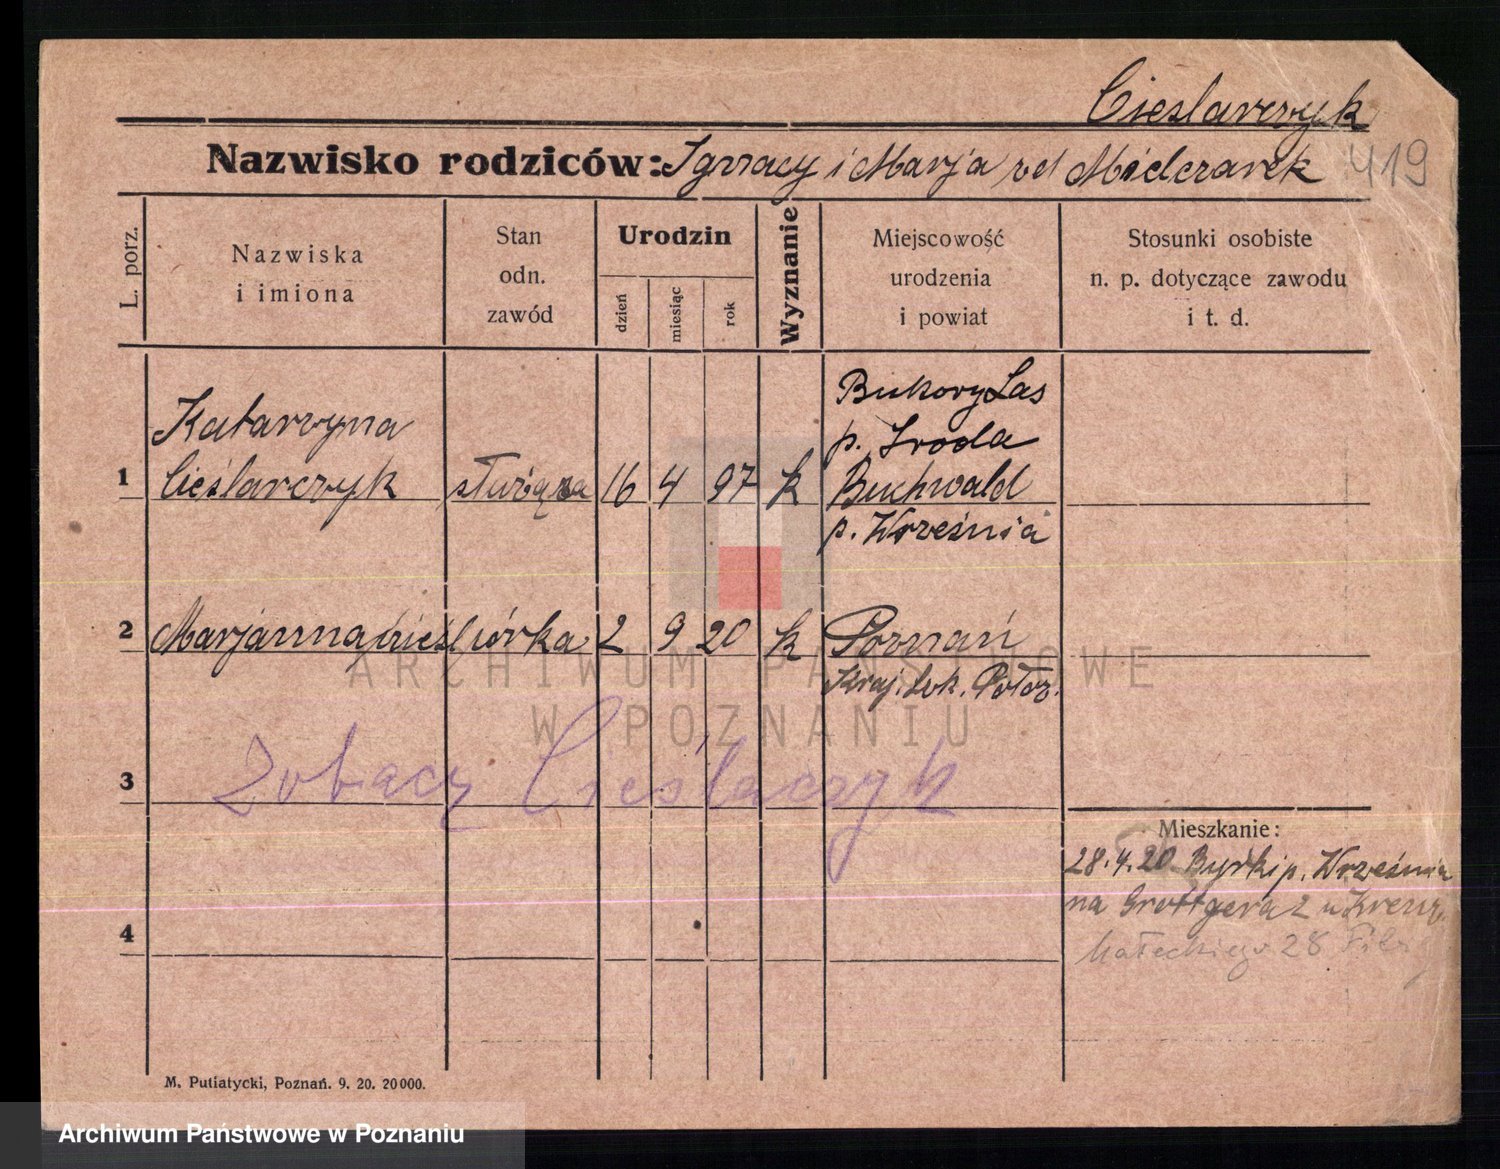 Cieslarczyk
Nazwisko rodziców: Ignacy i Marja od Mielczarek 419
L. porz.
Nazwiska i imiona
Stan odn. zawód
Urodzin
dzień
miesiąc
rok
Wyznanie
Miejscowość urodzenia i powiat
Stosunki osobiste n. p. dotyczące zawodu i t. d.
Bukowy Las
Katarzyna
p. Środa
1 Cieślarczyk służąca 16 4 97 k Buchwald
p. Września
2 Marjanna córka 2 9 20 k Poznań
Kraj. Lek. Położ.
ARCHIWUM PAŃSTWOWE
W POZNANIU
3 Zobacz Cieślaczyk
Mieszkanie:
28.4.20 p. Września
na Grottgera 2 u
4
Małeckiego 28
M. Putiatycki, Poznań. 9. 20. 20000.
Archiwum Państwowe w Poznaniu